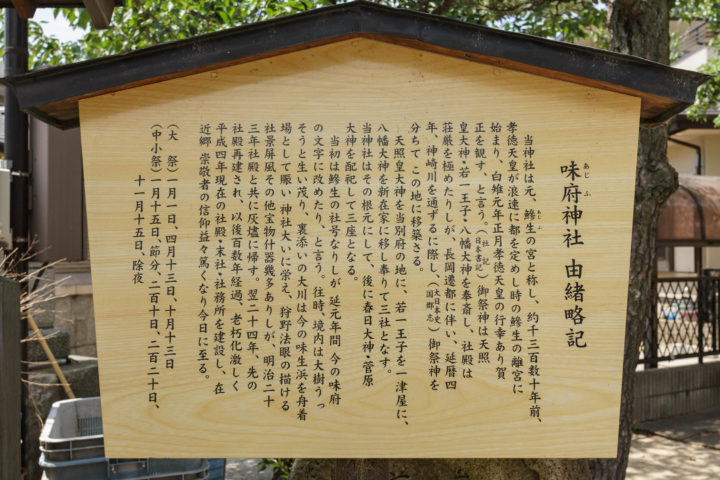 味府神社 由緒略記
あじふ
当神社は元、鯵生の宮と称し、約千三百数十年前、
あじふ
孝徳天皇が浪速に都を定めし時の鯵生の離宮に
始まり、白雉元年正月孝徳天皇の行幸あり賀
正を観す、と言う。(社記 日本書記) 御祭神は天照
皇大神・若一王子・八幡大神を奉斎し、社殿は
荘厳を極めたりしが、長岡遷都に伴い、延暦四
年、神崎川を通ずるに際し、(大日本史 国郡志) 御祭神を
分ちて この地に移築さる。
天照皇大神を当別府の地に、若一王子を一津屋に、
八幡大神を新在家に移し奉りて三社となす。
当神社はその根元にして、後に春日大神・菅原
大神を配祀して三座となる。
当初は鯵生の社号なりしが 延元年間 今の味府
の文字に改めたり、と言う。往時、境内は大樹うっ
そうと生い茂り、裏添いの大川は今の味生浜を舟着
場として賑い 神社大いに栄え、狩野法眼の描ける
社景屏風その他宝物什器幾多ありしが、明治二十
三年社殿と共に灰燼に帰す。翌二十四年、先の
社殿再建され、以後百数年経過、老朽化激しく
平成四年現在の社殿・末社・社務所を建設し、在
近郷 崇敬者の信仰益々篤くなり今日に至る。
(大 祭) 一月一日、四月十三日、十月十三日
(中小祭) 一月十五日、節分、二百十日、二百二十日、
十一月十五日、除夜